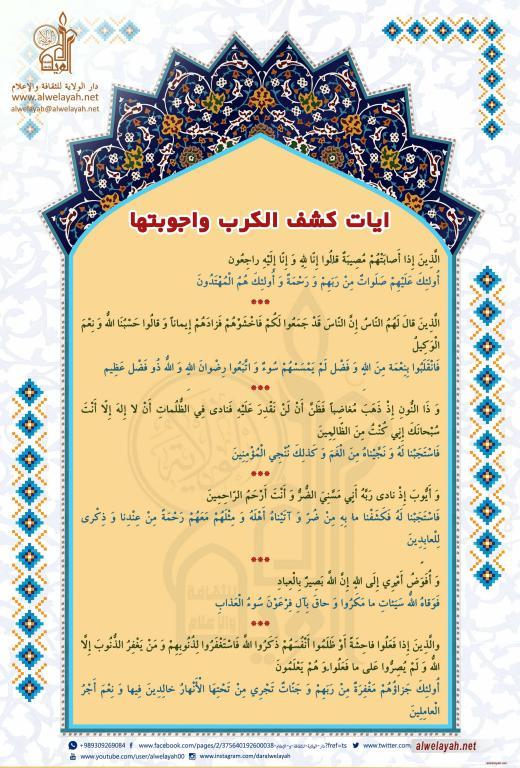 دار الولاية للثقافة والإعلام
www.alwelayah.net
alwelayah@alwelayah.net
ايات كشف الكرب واجوبتها
الَّذِينَ إِذا أَصابَتْهُمْ مُصِيبَةٌ قالُوا إِنَّا لِلهِ وَ إِنَّا إِلَيْهِ راجِعُون
أُولئِكَ عَلَيْهِمْ صَلَواتٌ مِنْ رَبِهِمْ وَ رَحْمَةٌ وَ أُولئِكَ هُمُ الْمُهْتَدُونَ
***
الَّذِينَ قالَ لَهُمُ النَّاسُ إِنَّ النَّاسَ قَدْ جَمَعُوا لَكُمْ فَاخْشَوْهُمْ فَزادَهُمْ إِيماناً وَ قالُوا حَسْبُنَا اللهُ وَ نِعْمَ
الْوَكِيلُ
فَانْقَلَبُوا بِنِعْمَة مِنَ اللهِ وَ فَضْل لَمْ يَمْسَسْهُمْ سُوءٌ وَ اتَّبَعُوا رِضْوانَ اللهِ وَ اللهُ ذُو فَضْل عَظِيم
***
وَ ذَا النُّونِ إِذْ ذَهَبَ مُغاضِباً فَظَنَّ أَنْ لَنْ نَقْدِرَ عَلَيْهِ فَنادى فِي الظُّلُماتِ أَنْ لا إِلهَ إِلَّا أَنْتَ
سُبْحانَكَ إِنِي كُنْتُ مِنَ الظَّالِمِينَ
فَاسْتَجَبْنا لَهُ وَ نَجَّيْناهُ مِنَ الْغَمِ وَ كَذلِكَ نُنْجِي الْمُؤْمِنِينَ
***
وَ أَيُّوبَ إِذْ نادى رَبَّهُ أَنِي مَسَّنِيَ الضُّرُّ وَ أَنْتَ أَرْحَمُ الرَّاحِمِينَ
فَاسْتَجَبْنا لَهُ فَكَشَفْنا ما بِهِ مِنْ ضُرّ وَ آتَيْناهُ أَهْلَهُ وَ مِثْلَهُمْ مَعَهُمْ رَحْمَةً مِنْ عِنْدِنا وَ ذِكْرى
لِلْعابِدِينَ
***
وَ أُفَوِضُ أَمْرِي إِلَى اللهِ إِنَّ اللهَ بَصِيرٌ بِالْعِبادِ
فَوَقاهُ اللهُ سَيِئاتِ ما مَكَرُوا وَ حاقَ بِآلِ فِرْعَوْنَ سُوءُ الْعَذابِ
***
والَّذِينَ إِذا فَعَلُوا فاحِشَةً أَوْ ظَلَمُوا أَنْفُسَهُمْ ذَكَرُوا اللهَ فَاسْتَغْفَرُوا لِذُنُوبِهِمْ وَ مَنْ يَغْفِرُ الذُّنُوبَ إِلَّا
اللهُ وَ لَمْ يُصِرُّوا عَلى ما فَعَلُوا وَ هُمْ يَعْلَمُونَ
أُولئِكَ جَزاؤُهُمْ مَغْفِرَةٌ مِنْ رَبِهِمْ وَ جَنَّاتٌ تَجْرِي مِنْ تَحْتِهَا الْأَنْهارُ خالِدِينَ فِيها وَ نِعْمَ أَجْرُ
الْعامِلِينَ
+989309269084 www.facebook.com/pages/دار-الولاية-للثقافة-و-الإعلام/375640192600038?fref=ts www.twitter.com/ alwelayah.net
www.youtube.com/user/alwelayah00 www.instagram.com/daralwelayah
www.alwelayah.net